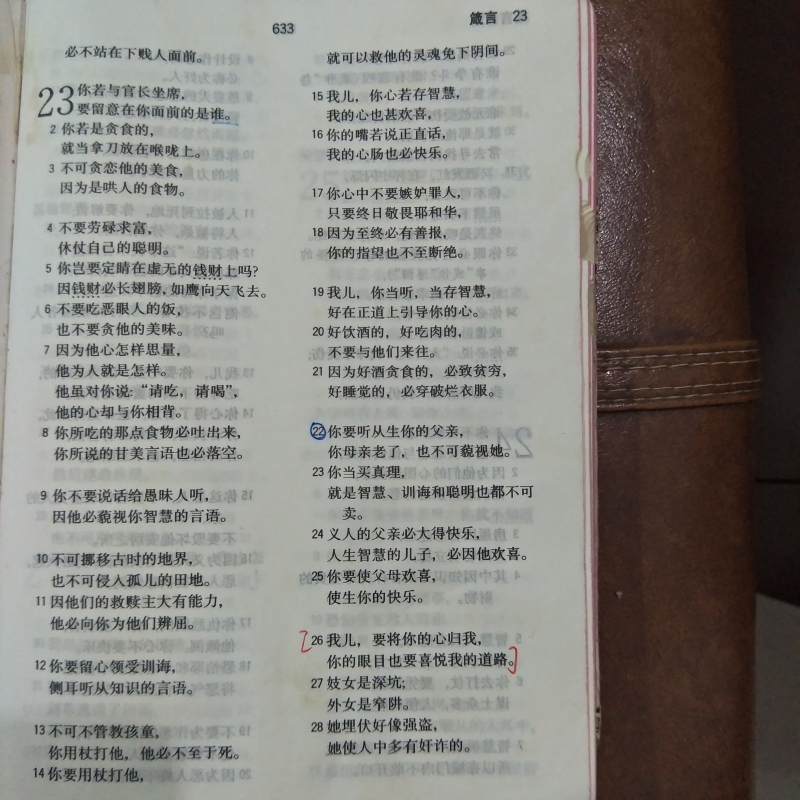 633
箴言 23
必不站在下贱人面前。
23 你若与官长坐席，
要留意在你面前的是谁。
2 你若是贪食的，
就当拿刀放在喉咙上。
3 不可贪恋他的美食，
因为是哄人的食物。
4 不要劳碌求富，
休仗自己的聪明。
5 你岂要定睛在虚无的钱财上吗？
因钱财必长翅膀，如鹰向天飞去。
6 不要吃恶眼人的饭，
也不要贪他的美味。
7 因为他心怎样思量，
他为人就是怎样。
他虽对你说：“请吃，请喝”，
他的心却与你相背。
8 你所吃的那点食物必吐出来，
你所说的甘美言语也必落空。
9 你不要说话给愚昧人听，
因他必藐视你智慧的言语。
10 不可挪移古时的地界，
也不可侵入孤儿的田地。
11 因他们的救赎主大有能力，
他必向你为他们辨屈。
12 你要留心领受训诲，
侧耳听从知识的言语。
13 不可不管教孩童，
你用杖打他，他必不至于死。
14 你要用杖打他，
就可以救他的灵魂免下阴间。
15 我儿，你心若存智慧，
我的心也甚欢喜，
16 你的嘴若说正直话，
我的心肠也必快乐。
17 你心中不要嫉妒罪人，
只要终日敬畏耶和华，
18 因为至终必有善报，
你的指望也不至断绝。
19 我儿，你当听，当存智慧，
好在正道上引导你的心。
20 好饮酒的，好吃肉的，
不要与他们来往。
21 因为好酒贪食的，必致贫穷，
好睡觉的，必穿破烂衣服。
22 你要听从生你的父亲，
你母亲老了，也不可藐视她。
23 你当买真理，
就是智慧、训诲和聪明也都不可
卖。
24 义人的父亲必大得快乐，
人生智慧的儿子，必因他欢喜。
25 你要使父母欢喜，
使生你的快乐。
26 我儿，要将你的心归我，
你的眼目也要喜悦我的道路。
27 妓女是深坑；
外女是窄阱。
28 她埋伏好像强盗，
她使人中多有奸诈的。